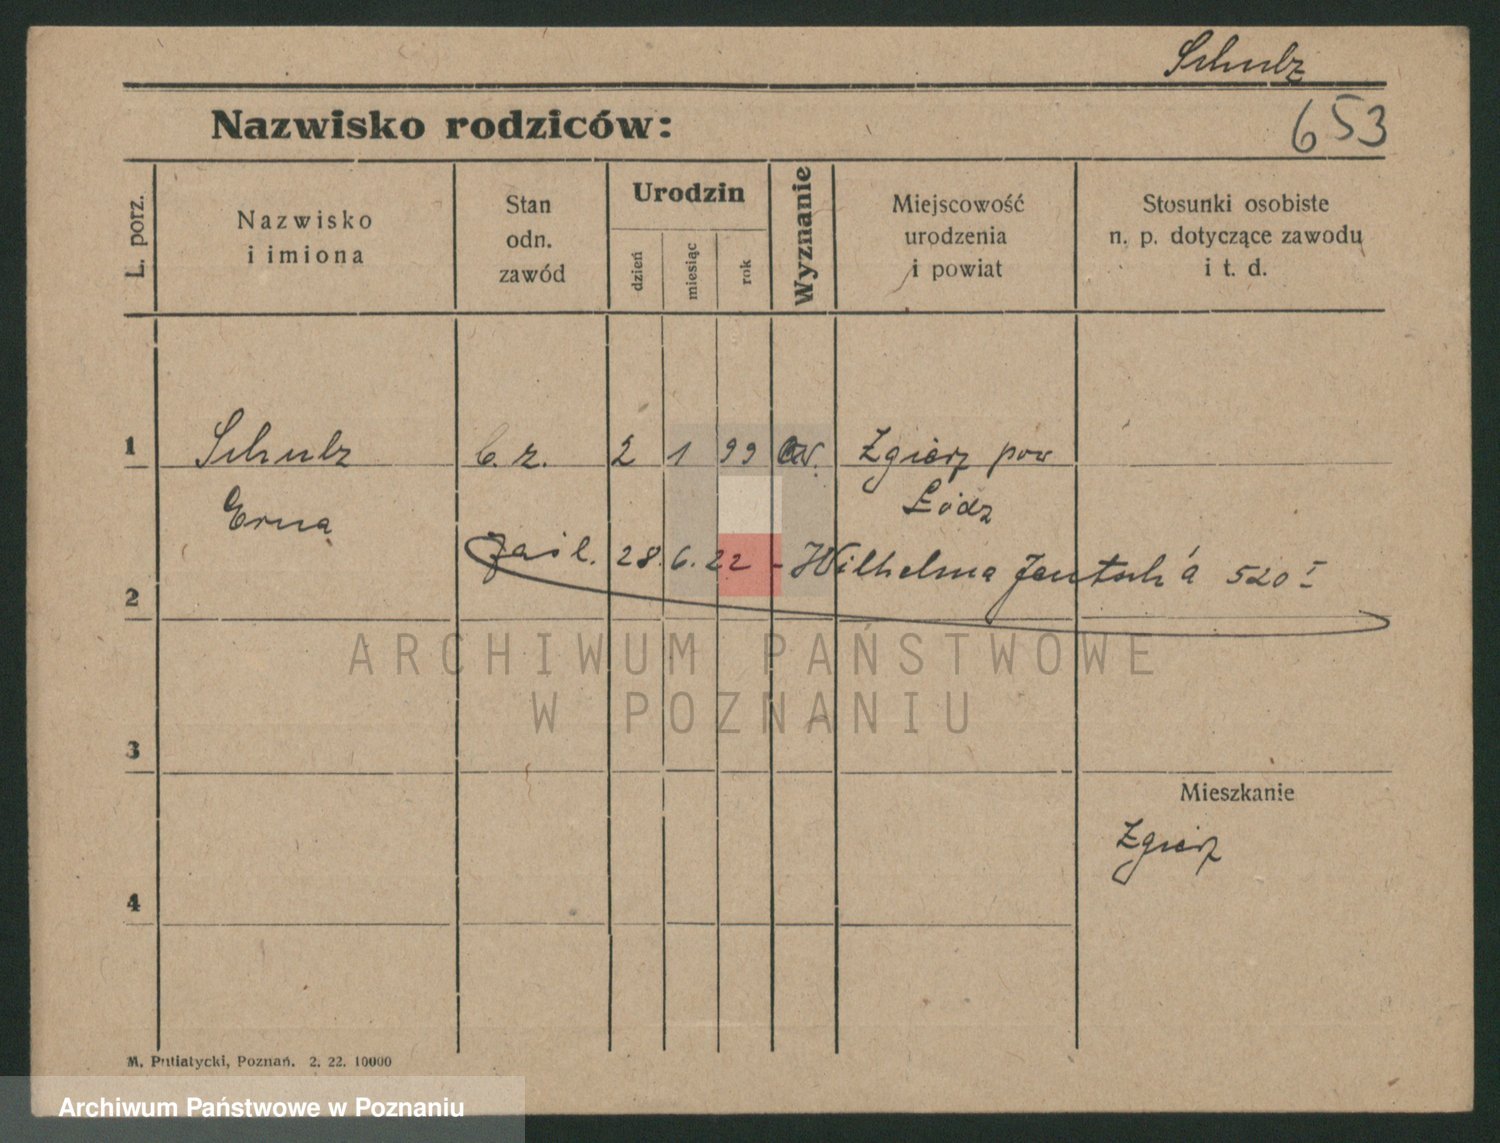 Schulz
653
Nazwisko rodziców:
L. porz.
Nazwisko
i imiona
Stan
odn.
zawód
Urodzin
dzień
miesiąc
rok
Wyznanie
Miejscowość
urodzenia
i powiat
Stosunki osobiste
n. p. dotyczące zawodu
i t. d.
1 Schulz b. z. 2 1 99 ew. Zgierz pow
Erna Łódz
zaśl. 28. 6. 22 - Wilhelma á 520 I
2
3
Mieszkanie
Zgierz
4
M. Putiatycki, Poznań. 2. 22. 10000
ARCHIWUM PAŃSTWOWE
W POZNANIU
Archiwum Państwowe w Poznaniu